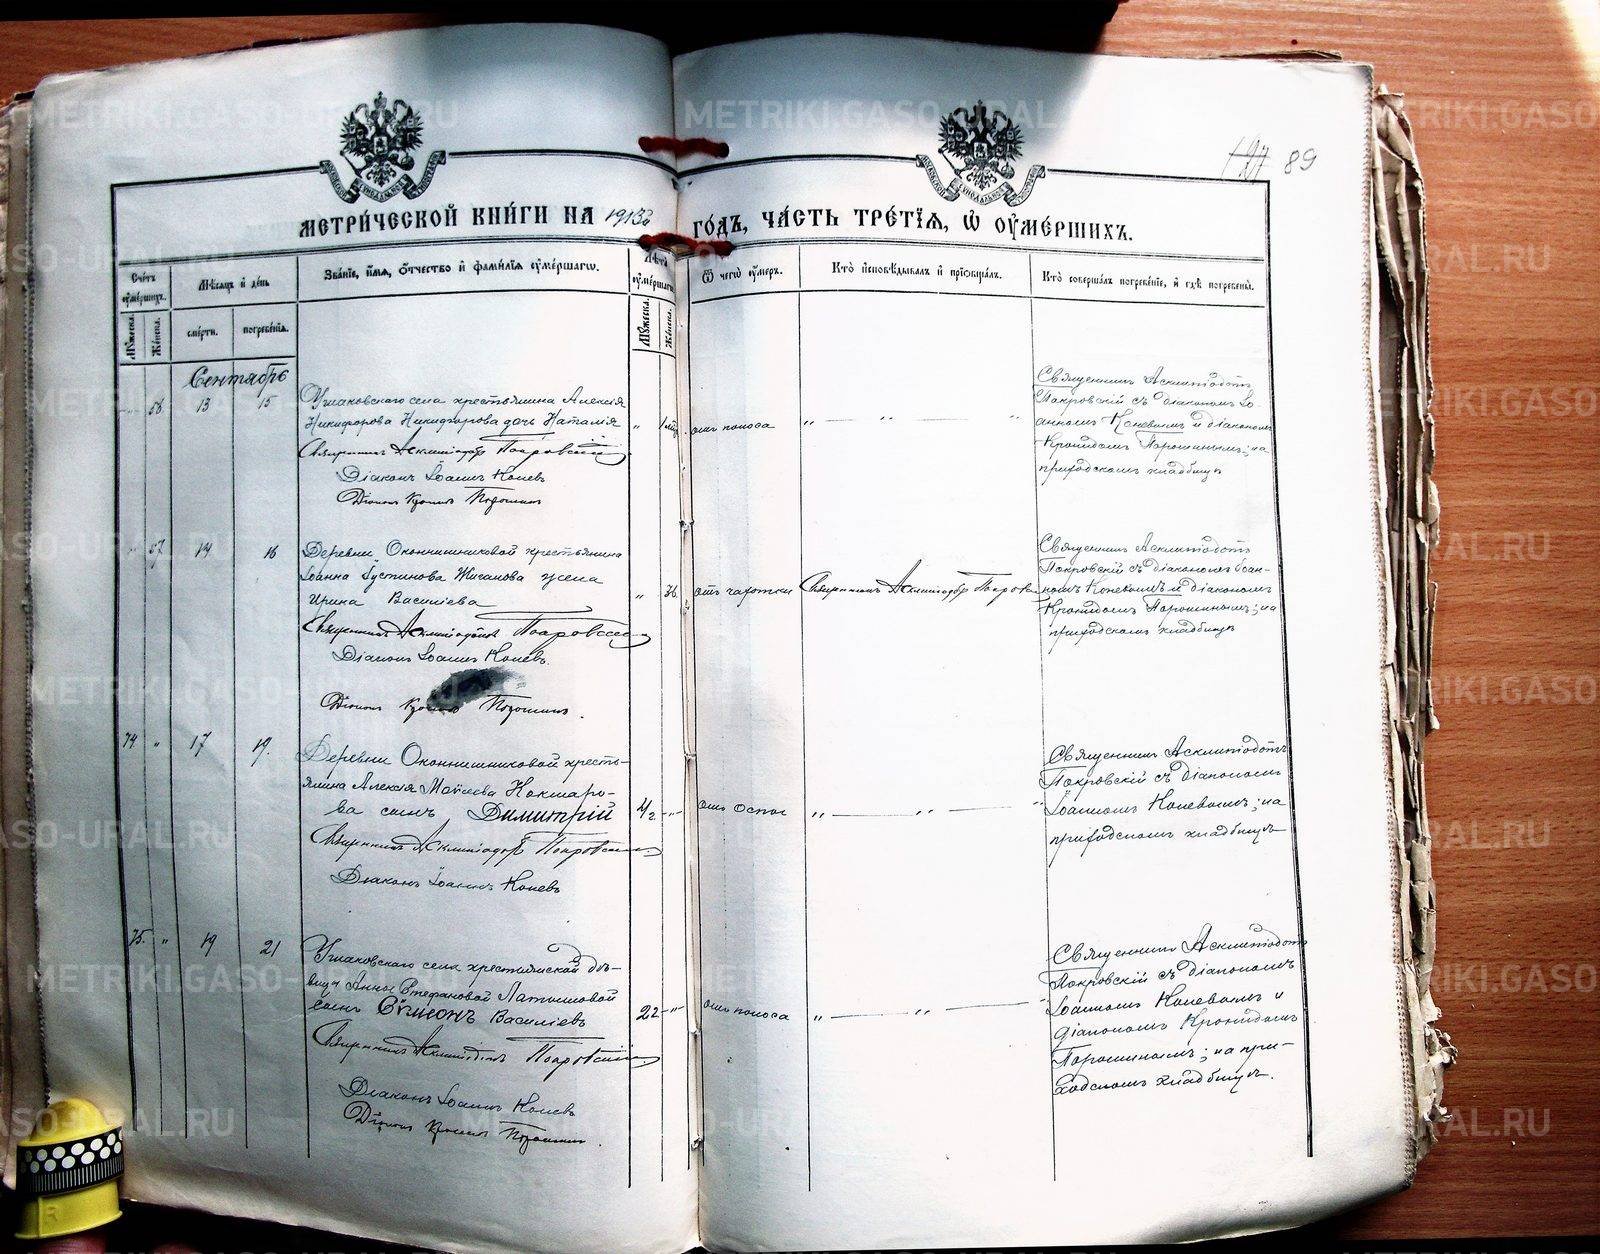 METRIKI.GASO-URAL.RU
127 89
МЕТРИ́ЧЕСКОЙ КНИ́ГИ НА 1913й ГО́ДЪ, ЧА́СТЬ ТРЕ́ТІѦ, Ѿ ОУ҆МЕ́РШИХЪ.
Сче́тъ оу҆ме́ршихъ.
Мѣ́сяцъ и҆ де́нь
Зва́ніе, и҆́мя, ѻ҆́тчество и҆ фами́лія оу҆ме́ршагѡ.
Лѣ́та оу҆ме́ршагѡ
Ѿ чегѡ̀ оу҆́меръ.
Кто̀ и҆сповѣ́дывалъ и҆ прїѡбща́лъ.
Кто̀ соверша́лъ погребе́ніе, и҆ гдѣ̀ погребены̀.
Мꙋ́жеска.
Же́нска.
сме́рти.
погребе́нія.
Мꙋ́жеска.
Же́нска.
Сентябрь
56 13 15
Ушаковскаго села крестьянина Алексія
Никифорова Никифорова дочь Наталія
Священникъ Асклипіодотъ Покровскій
Діаконъ Іоаннъ Коневъ
Діаконъ Кронидъ Порошинъ
отъ поноса
Священникъ Асклипіодотъ
Покровскій съ діакономъ Іо-
анномъ Коневымъ и діакономъ
Кронидомъ Порошинымъ; на
приходскомъ кладбищѣ
57 14 16
Деревни Оконнишниковой крестьянина
Іоанна Іустинова Жиганова жена
Ирина Василіева
Священникъ Асклипіодотъ Покровскій
Діаконъ Іоаннъ Коневъ.
Діаконъ Кронидъ Порошинъ.
" 36
отъ чахотки
Священникъ Асклипіодотъ Покровскій
Священникъ Асклипіодотъ
Покровскій съ діакономъ Іоан-
номъ Коневымъ и діакономъ
Кронидомъ Порошинымъ; на
приходскомъ кладбищѣ
74 " 17 19.
Деревни Оконнишниковой кресть-
янина Алексія Моѵсеева Кокшаро-
ва сынъ Димитрій
Священникъ Асклипіодотъ Покровскій
Діаконъ Іоаннъ Коневъ
отъ оспы
Священникъ Асклипіодотъ
Покровскій съ діакономъ
Іоанномъ Коневымъ; на
приходскомъ кладбищѣ
75. " 19 21
Ушаковскаго села крестьянской дѣ-
вицы Анны Стефановой Латышовой
сынъ Сѵмеонъ Василіевъ
Священникъ Асклипіодотъ Покровскій
Діаконъ Іоаннъ Коневъ
Діаконъ Кронидъ Порошинъ.
отъ поноса
Священникъ Асклипіодотъ
Покровскій съ діакономъ
Іоанномъ Коневымъ и
діакономъ Кронидомъ
Порошинымъ; на при-
ходскомъ кладбищѣ.